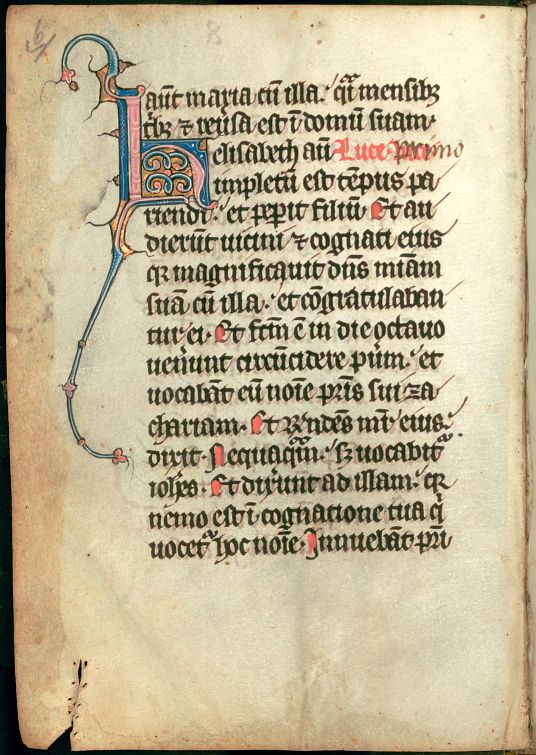 aut̄ maria cū illa. qͣi mensibꝫ
tͥbꝫ ⁊ reuͥsa est ī domū suam.
elisabeth aū Luce. primo
impletū est tēpus pa
riendi. et peperit filiū. Et au
dierūt uicini ⁊ cognati eius
qꝛ magnificauit dn̄s miām
suā cū illa. et cōgratulaban
tur ei. Et fcm̄ ē in die octauo
uenerunt circūcidere puerū. et
uocabāt eū noīe pr̄is sui za
chariam. Et rn̄dēs mr̄ eius.
dixit. Nequaqͣm. sꝫ uocabitᷣ
ioh̄es. Et dixerunt ad illam. qꝛ
nemo est ī cognatione tua qͥ
uocetᷣ hoc noīe. Innuebāt pr̄i